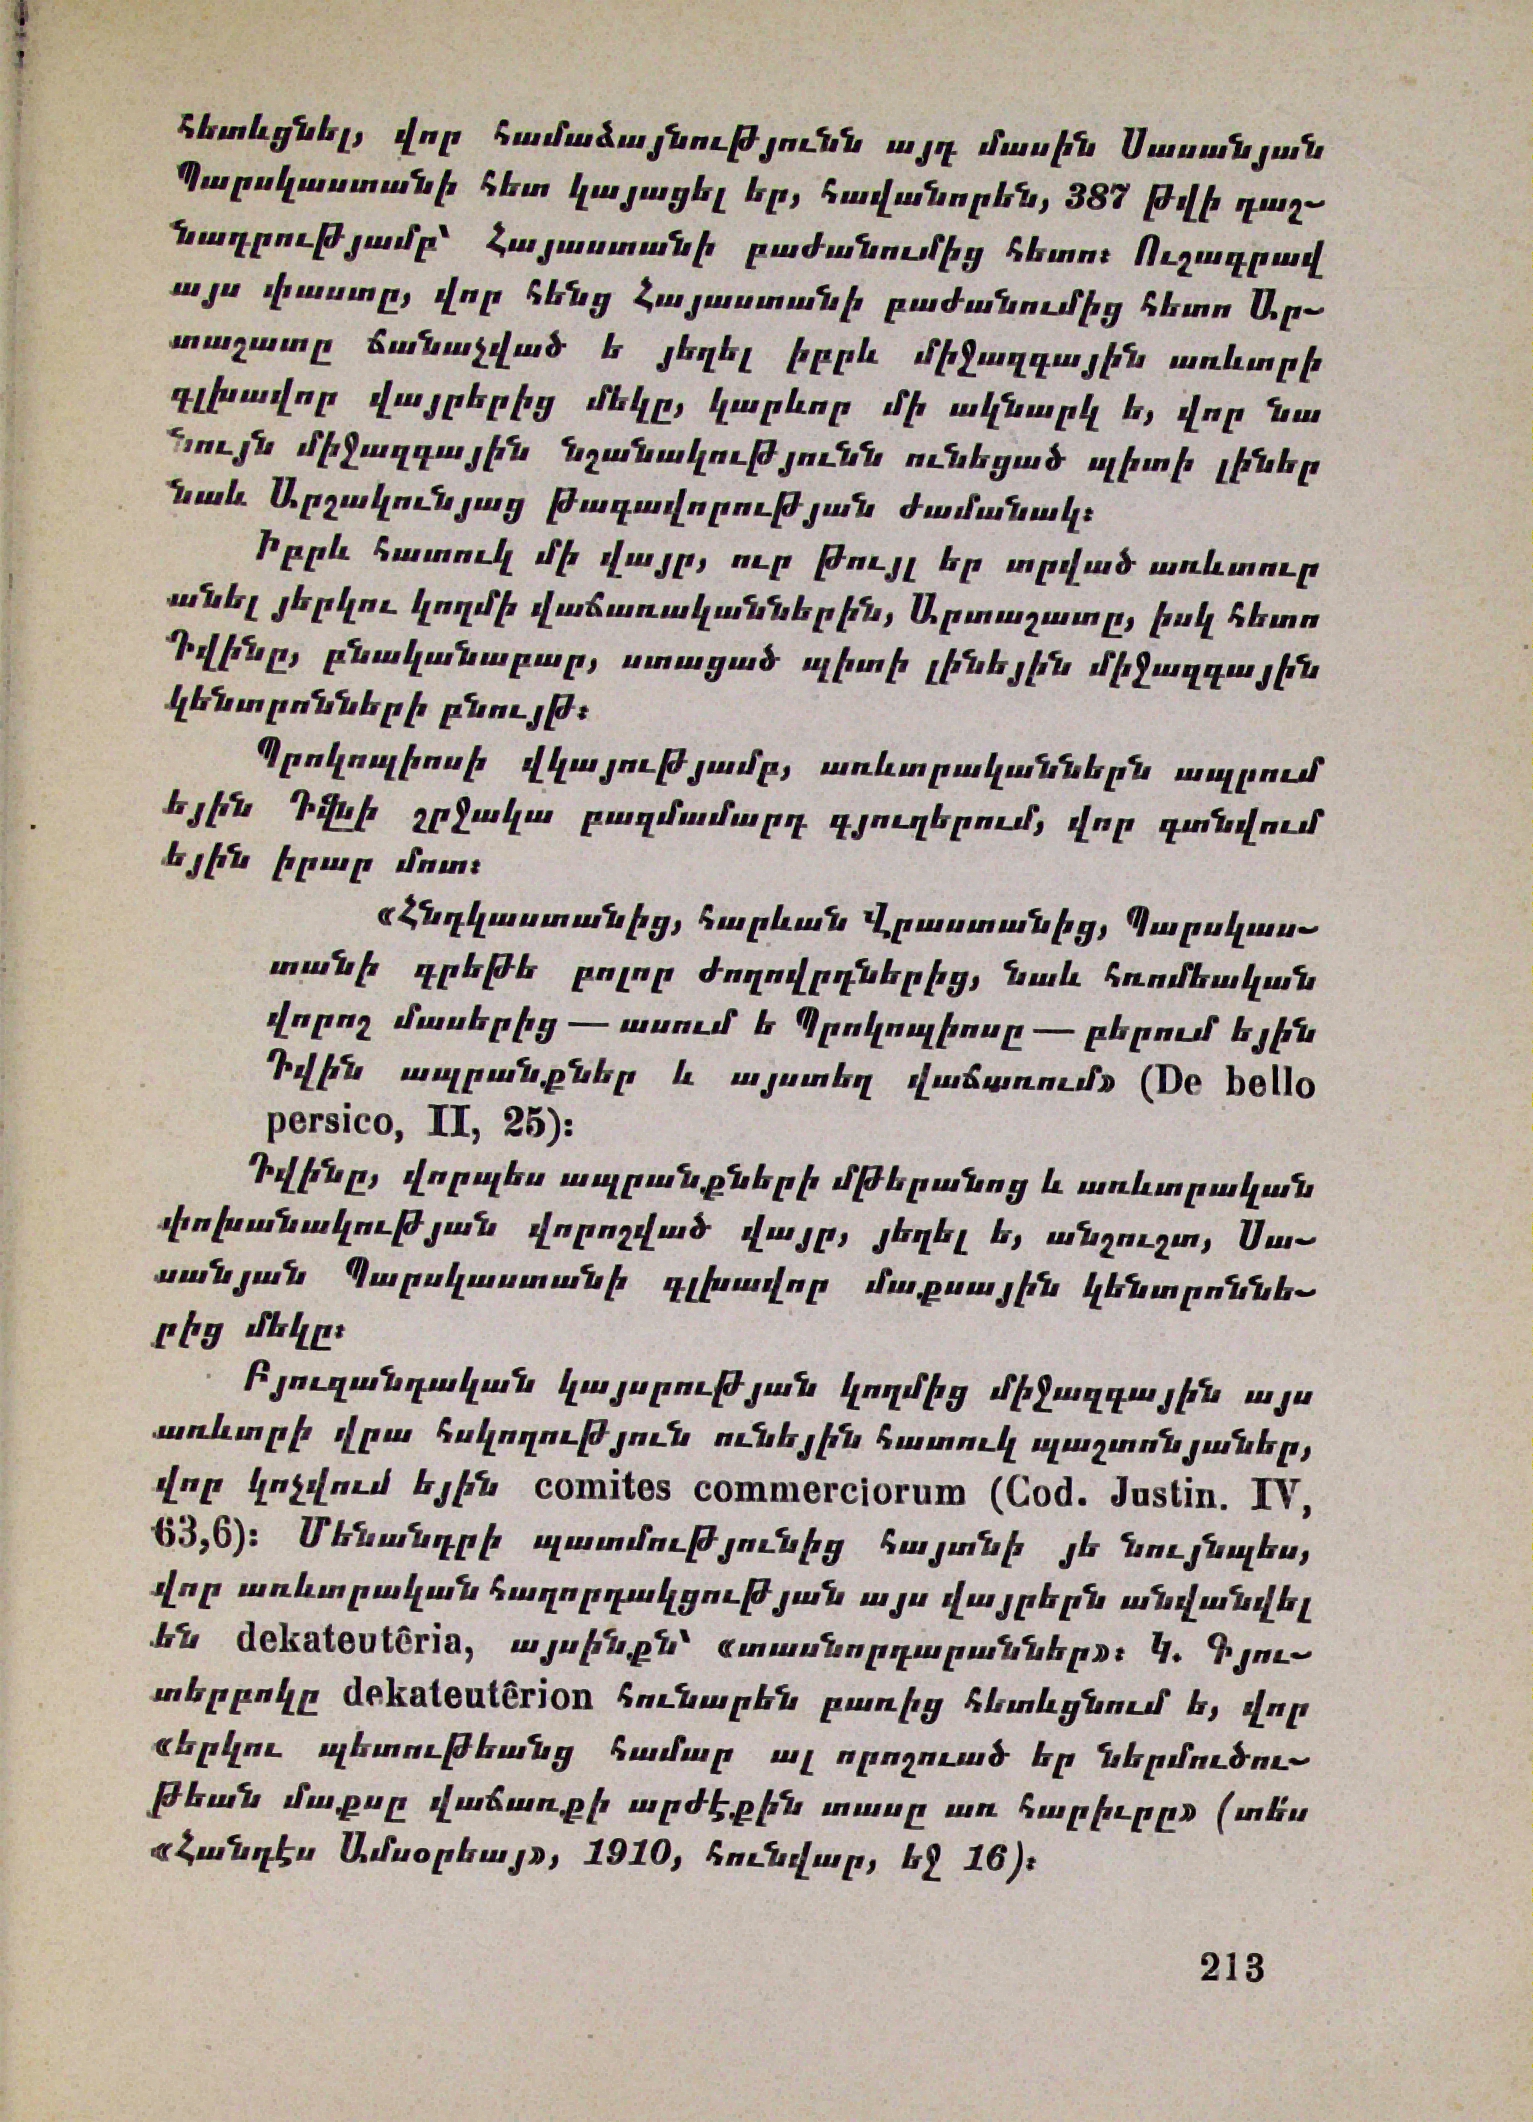 հետևցնել, վոր համաձայնությունն այդ մասին Սասանյան
Պարսկաստանի հետ կայացել եր, հավանորեն, 387 թվի դաշ-
նադրությամբ՝ Հայաստանի բաժանումից հետո։ Ուշագրավ
այս փաստը, վոր հենց Հայաստանի բաժանումից հետո Ար-
տաշատը ճանաչված ե յեղել իբրև միջազգային առևտրի
գլխավոր վայրերից մեկը, կարևոր մի ակնարկ ե, վոր նա
նույն միջազգային նշանակությունն ունեցած պիտի լիներ
նաև Արշակունյաց թագավորության ժամանակ։
Իբրև հատուկ մի վայր, ուր թույլ եր տրված առևտուր
անել յերկու կողմի վաճառականներին, Արտաշատը, իսկ հետո
Դվինը, բնականաբար, ստացած պիտի լինեյին միջազգային
կենտրոնների բնույթ։
Պրոկոպիոսի վկայությամբ, առևտրականներն ապրում
եյին Դվնի շրջակա բազմամարդ գյուղերում, վոր գտնվում
եյին իրար մոտ։
«Հնդկաստանից, հարևան Վրաստանից, Պարսկաս-
տանի գրեթե բոլոր ժողովրդներից, նաև հռոմեական
վորոշ մասերից — ասում ե Պրոկոպիոսը — բերում եյին
Դվին ապրանքներ և այստեղ վաճառում» (De bello
persico, II, 25)։
Դվինը, վորպես ապրանքների մթերանոց և առևտրական
փոխանակության վորոշված վայր, յեղել ե, անշուշտ, Սա-
սանյան Պարսկաստանի գլխավոր մաքսային կենտրոննե-
րից մեկը։
Բյուզանդական կայսրության կողմից միջազգային այս
առևտրի վրա հսկողություն ունեյին հատուկ պաշտոնյաներ,
վոր կոչվում եյին comites commerciorum (Cod. Justin. IV,
63,6)։ Մենանդրի պատմությունից հայտնի յե նույնպես,
վոր առևտրական հաղորդակցության այս վայրերն անվանվել
են dekateutêria, այսինքն՝ «տասնորդարաններ»։ Կ. Գյու-
տերբոկը dekateutêrion հունարեն բառից հետևցնում ե, վոր
«երկու պետութեանց համար ալ որոշուած եր ներմուծու-
թեան մաքսը վաճառքի արժէքին տասը առ հարիւրը» (տե՛ս
«Հանդէս Ամսօրեայ», 1910, հունվար, եջ 16)։
213